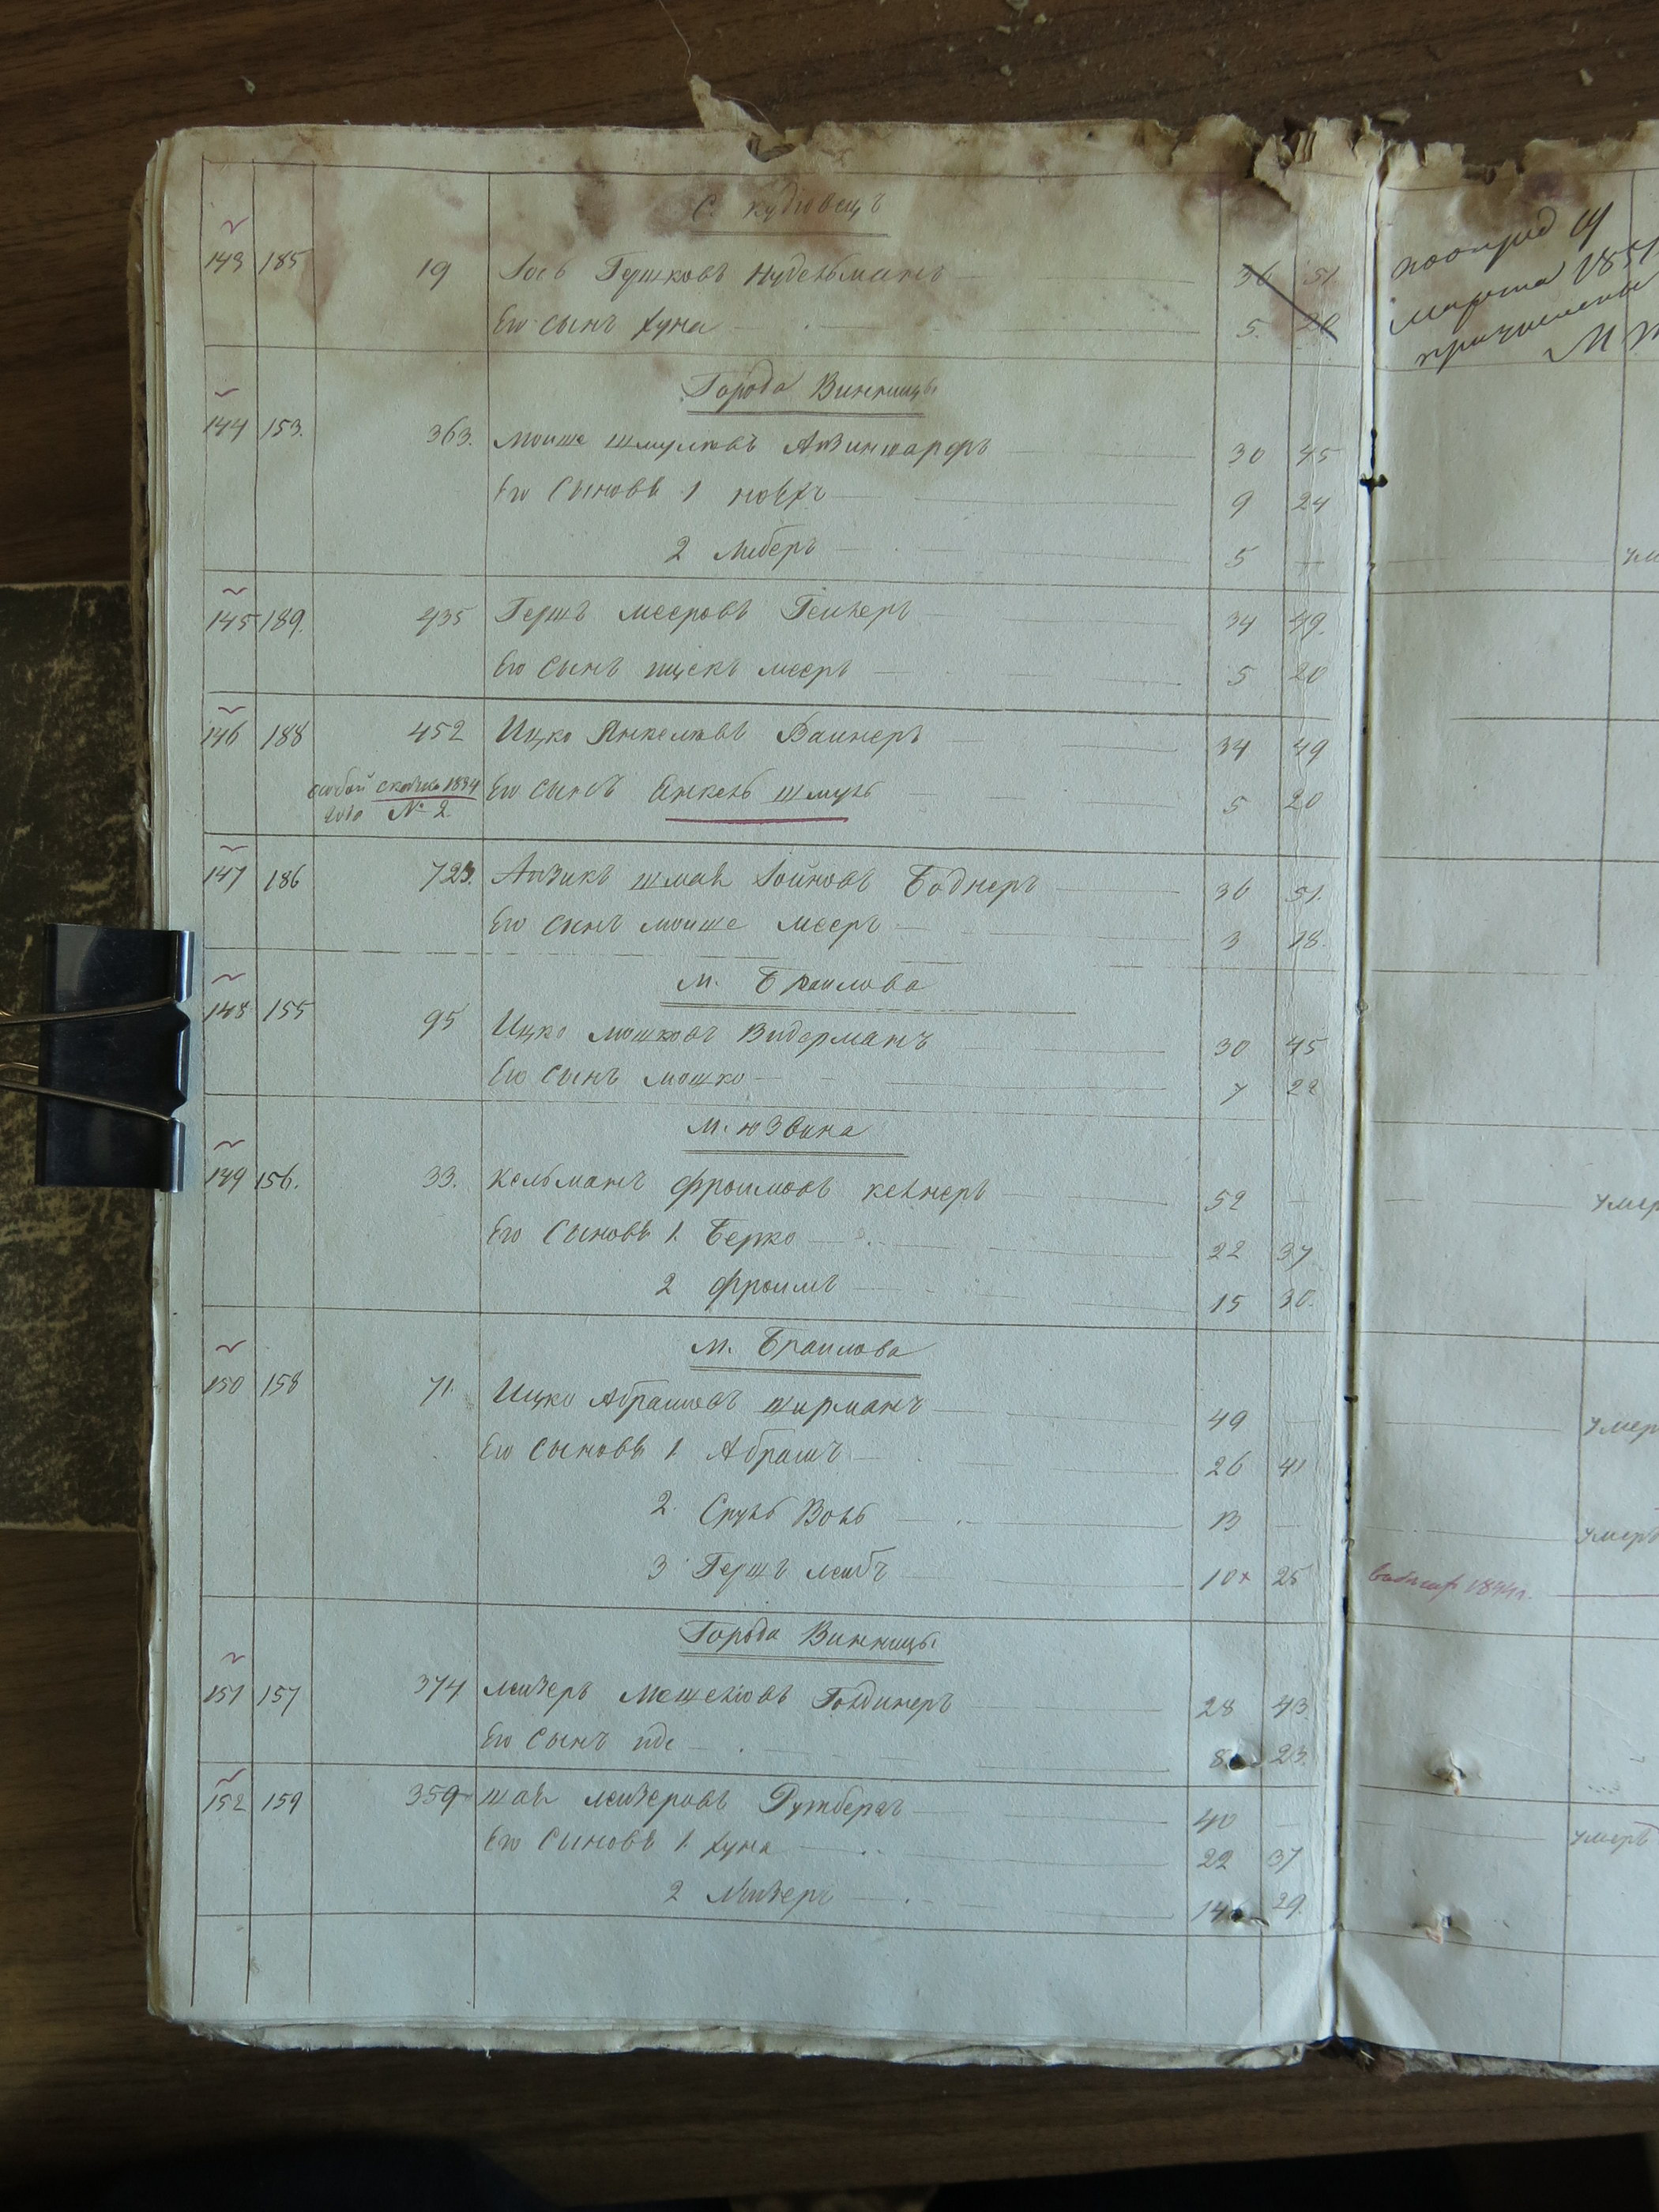 С. Кудіовецъ
143 185 19 Іось Гершковъ Нудельманъ 36 51
Его сынъ Хуна 5. 20
Города Винницы
144 153. 363. Моише Шмулювъ Аизиншарфъ 30 45
Его Сыновья 1 Новхъ 9 24
2 Либеръ 5 —
145 189. 435 Гершъ Мееровъ Геикеръ 34 49.
Его Сынъ Ицекъ Мееръ 5 20
146 188 452 Ицко Янкелювъ Ваинеръ 34 49
особой сказкъ 1834
года № 2.
Его сынъ Янкель Шмуль 5 20
147 186 723. Аизикъ Шмая Іойновъ Боднеръ 36 51.
Его сынъ Моише Мееръ 3 18.
М. Браилова
148 155 95 Ицко Мошковъ Видерманъ 30 45
Его Сынъ Мошко 7 22
М. Юзвина
149 156. 33. Кельманъ Фроимовъ Келнеръ 52 —
Его Сыновья 1. Берко 22 37
2 Фроимъ 15 30.
М. Браилова
150 158 71. Ицко Абрамовъ Ширманъ 49 —
Его Сыновья 1. Абрамъ 26 41
2. Сруль Воль 13 —
3 Гершъ Леибъ 10 × 25
Города Винницы
151 157 374 Леизеръ Мошковъ Голдинеръ 28 43.
Его Сынъ Иде 8 23.
152 159 359 Шая Леизеровъ Ружбергъ 40 —
Его Сыновья 1. Хуна 22 37
2 Лизеръ 14 29.
марта
умеръ
умеръ